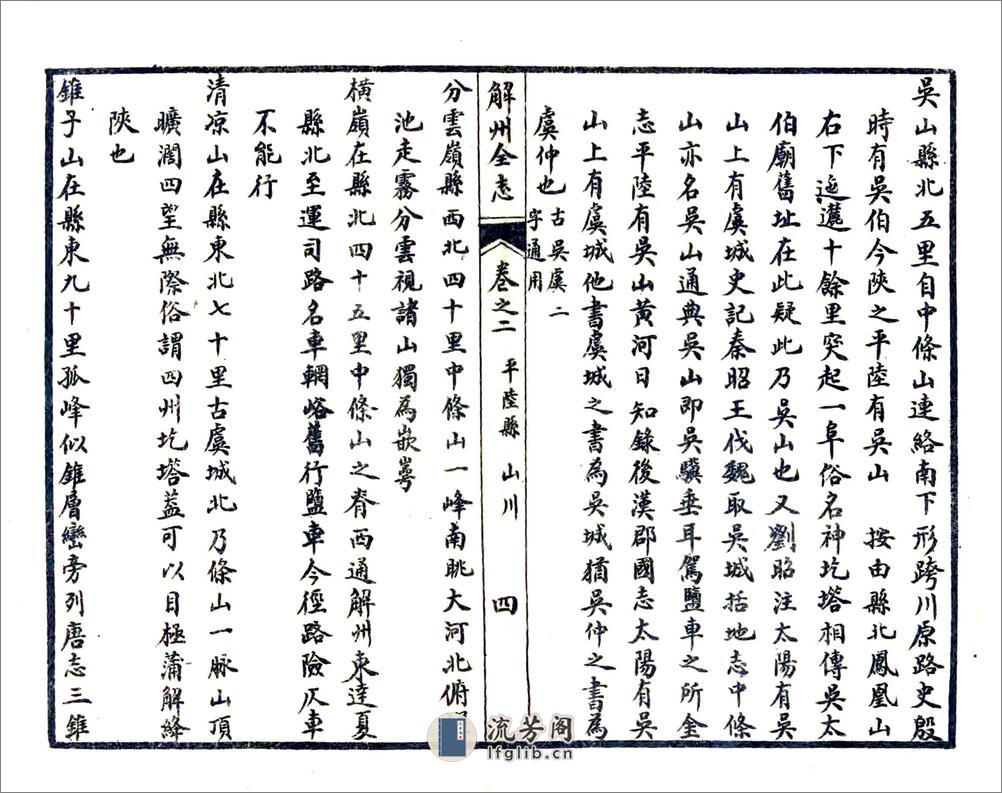 吳山縣北五里自中條山連絡南下形跨川原路史殷
時有吳伯今陝之平陸有吳山　按由縣北鳳凰山
右下迤邐十餘里突起一阜俗名神圪塔相傳吳太
伯廟舊址在此疑此乃吳山也又劉昭注太陽有吳
山上有虞城史記秦昭王伐魏取吳城括地志中條
山亦名吳山通典吳山即吳驥垂耳駕鹽車之所金
志平陸有吳山黃河日知錄後漢郡國志太陽有吳
山上有虞城他書虞城之書為吳城猶吳仲之書為
虞仲也古吳虞二字通用
解州全志　卷之二　平陸縣　山川　四
分雲嶺縣西北四十里中條山一峰南眺大河北俯
池走霧分雲視諸山獨為嶔崿
橫嶺在縣北四十五里中條山之脊西通解州東達夏
縣北至運司路名車輞峪舊行鹽車今徑路險仄車
不能行
清凉山在縣東北七十里古虞城北乃條山一脈山頂
曠濶四望無際俗謂四州圪塔蓋可以目極蒲解絳
陝也
錐子山在縣東九十里孤峰似錐層巒旁列唐志三錐
流芳阁
lfglib.cn